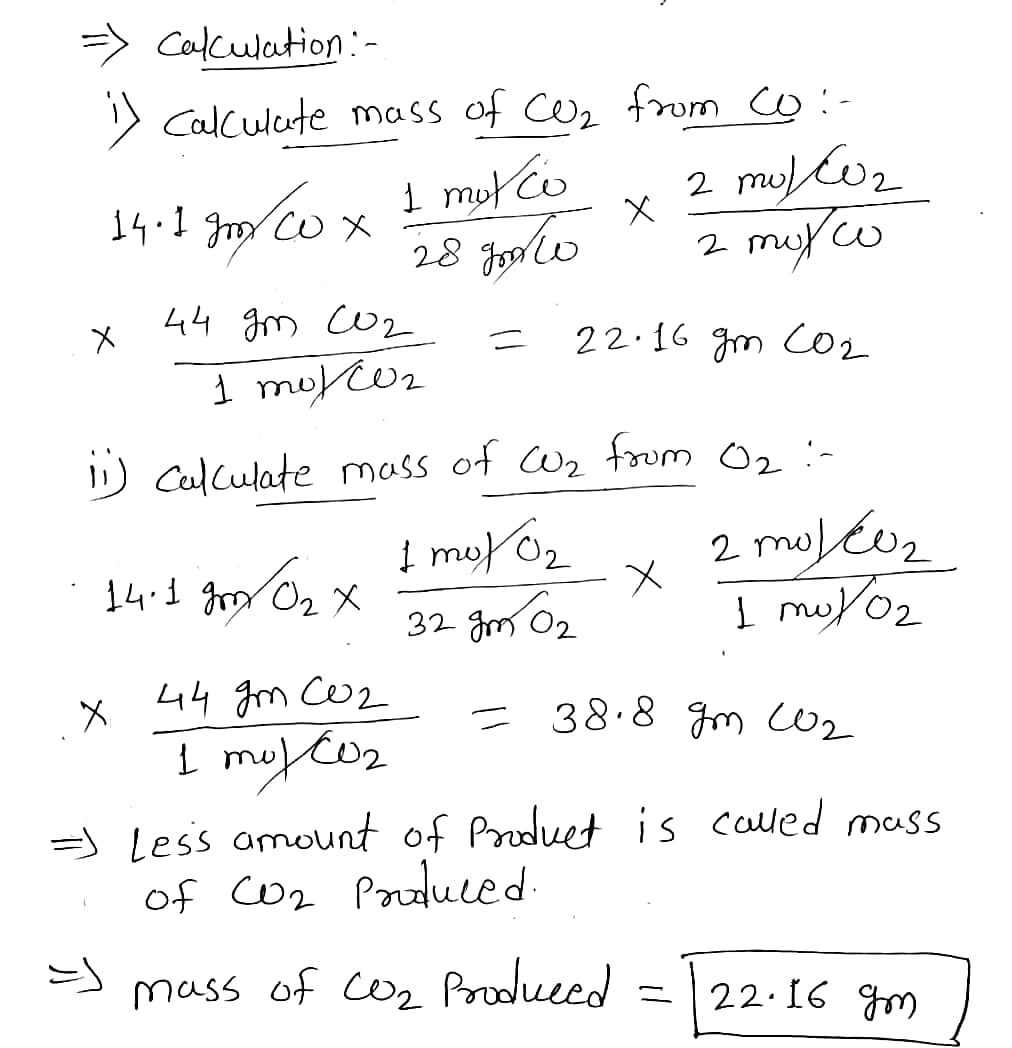 => Calculation:-
i) Calculate mass of CO2 from CO:-
14.1 gm CO x 1 mol CO / 28 gm CO x 2 mol CO2 / 2 mol CO
x 44 gm CO2 / 1 mol CO2 = 22.16 gm CO2
ii) Calculate mass of CO2 from O2:-
14.1 gm O2 x 1 mol O2 / 32 gm O2 x 2 mol CO2 / 1 mol O2
x 44 gm CO2 / 1 mol CO2 = 38.8 gm CO2
=> Less amount of Product is called mass
of CO2 Produced.
=> mass of CO2 Produced = 22.16 gm